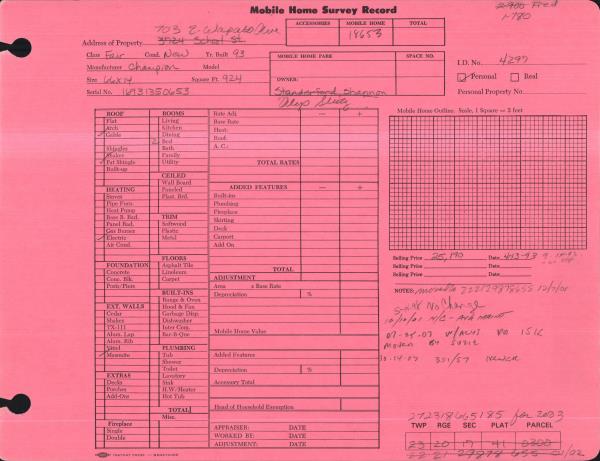 Mobile Home Survey Record
703 E. Wapato Ave
3724 School St
Address of Property
ACCESSORIES MOBILE HOME TOTAL
18653
Class Fair Cond. New Yr. Built 93
Manufacturer Champion Model
Size 66x14 Square Ft. 924
Serial No. 16931350653
MOBILE HOME PARK SPACE NO.
OWNER:
Standerford, Shannon
I.D. No. 4297
Personal Real
Personal Property No.
ROOF
Flat
Arch
Gable
Shingles
Shakes
Pat Shingle
Built-up
HEATING
Stoves
Pipe Furn.
Heat Pump
Base B. Rad.
Panel Rad.
Gas Burner
Electric
Air Cond.
FOUNDATION
Concrete
Conc. Blk.
Posts/Piers
EXT. WALLS
Cedar
Shakes
TX-111
Alum. Lap
Alum. Rib
Vinyl
Masonite
EXTRAS
Decks
Porches
Add-Ons
Fireplace
Single
Double
ROOMS
Living
Kitchen
Dining
2 Bed
Bath
Family
Utility
CEILED
Wall Board
Paneled
Plast. Brd.
TRIM
Softwood
Plastic
Metal
FLOORS
Asphalt Tile
Linoleum
Carpet
BUILT-INS
Range & Oven
Hood & Fan
Garbage Disp.
Dishwasher
Inter Com.
Bar-B-Que
PLUMBING
Tub
Shower
Toilet
Lavatory
Sink
H.W./Heater
Hot Tub
TOTAL
Misc.
Rate Adj. — +
Base Rate
Heat:
Roof:
A. C.:
TOTAL RATES
ADDED FEATURES — +
Built-ins
Plumbing
Fireplace
Skirting
Deck
Carport
Add On
TOTAL
ADJUSTMENT
Area x Base Rate
Depreciation %
Mobile Home Value
Added Features
Depreciation %
Accessory Total
Head of Household Exemption
APPRAISER: DATE
WORKED BY: DATE
ADJUSTMENT: DATE
Mobile Home Outline. Scale, 1 Square = 2 feet
Selling Price 25,190 Date 4-13-93
Selling Price Date
Selling Price Date
NOTES: 12/7/01
No Change
10/10/01 N/C
07-24-07
Moved By
10-14-07 351/57
272318665185 for 2003
TWP RGE SEC PLAT PARCEL
23 20 17 41 0300
22 21 27878 655 01/02